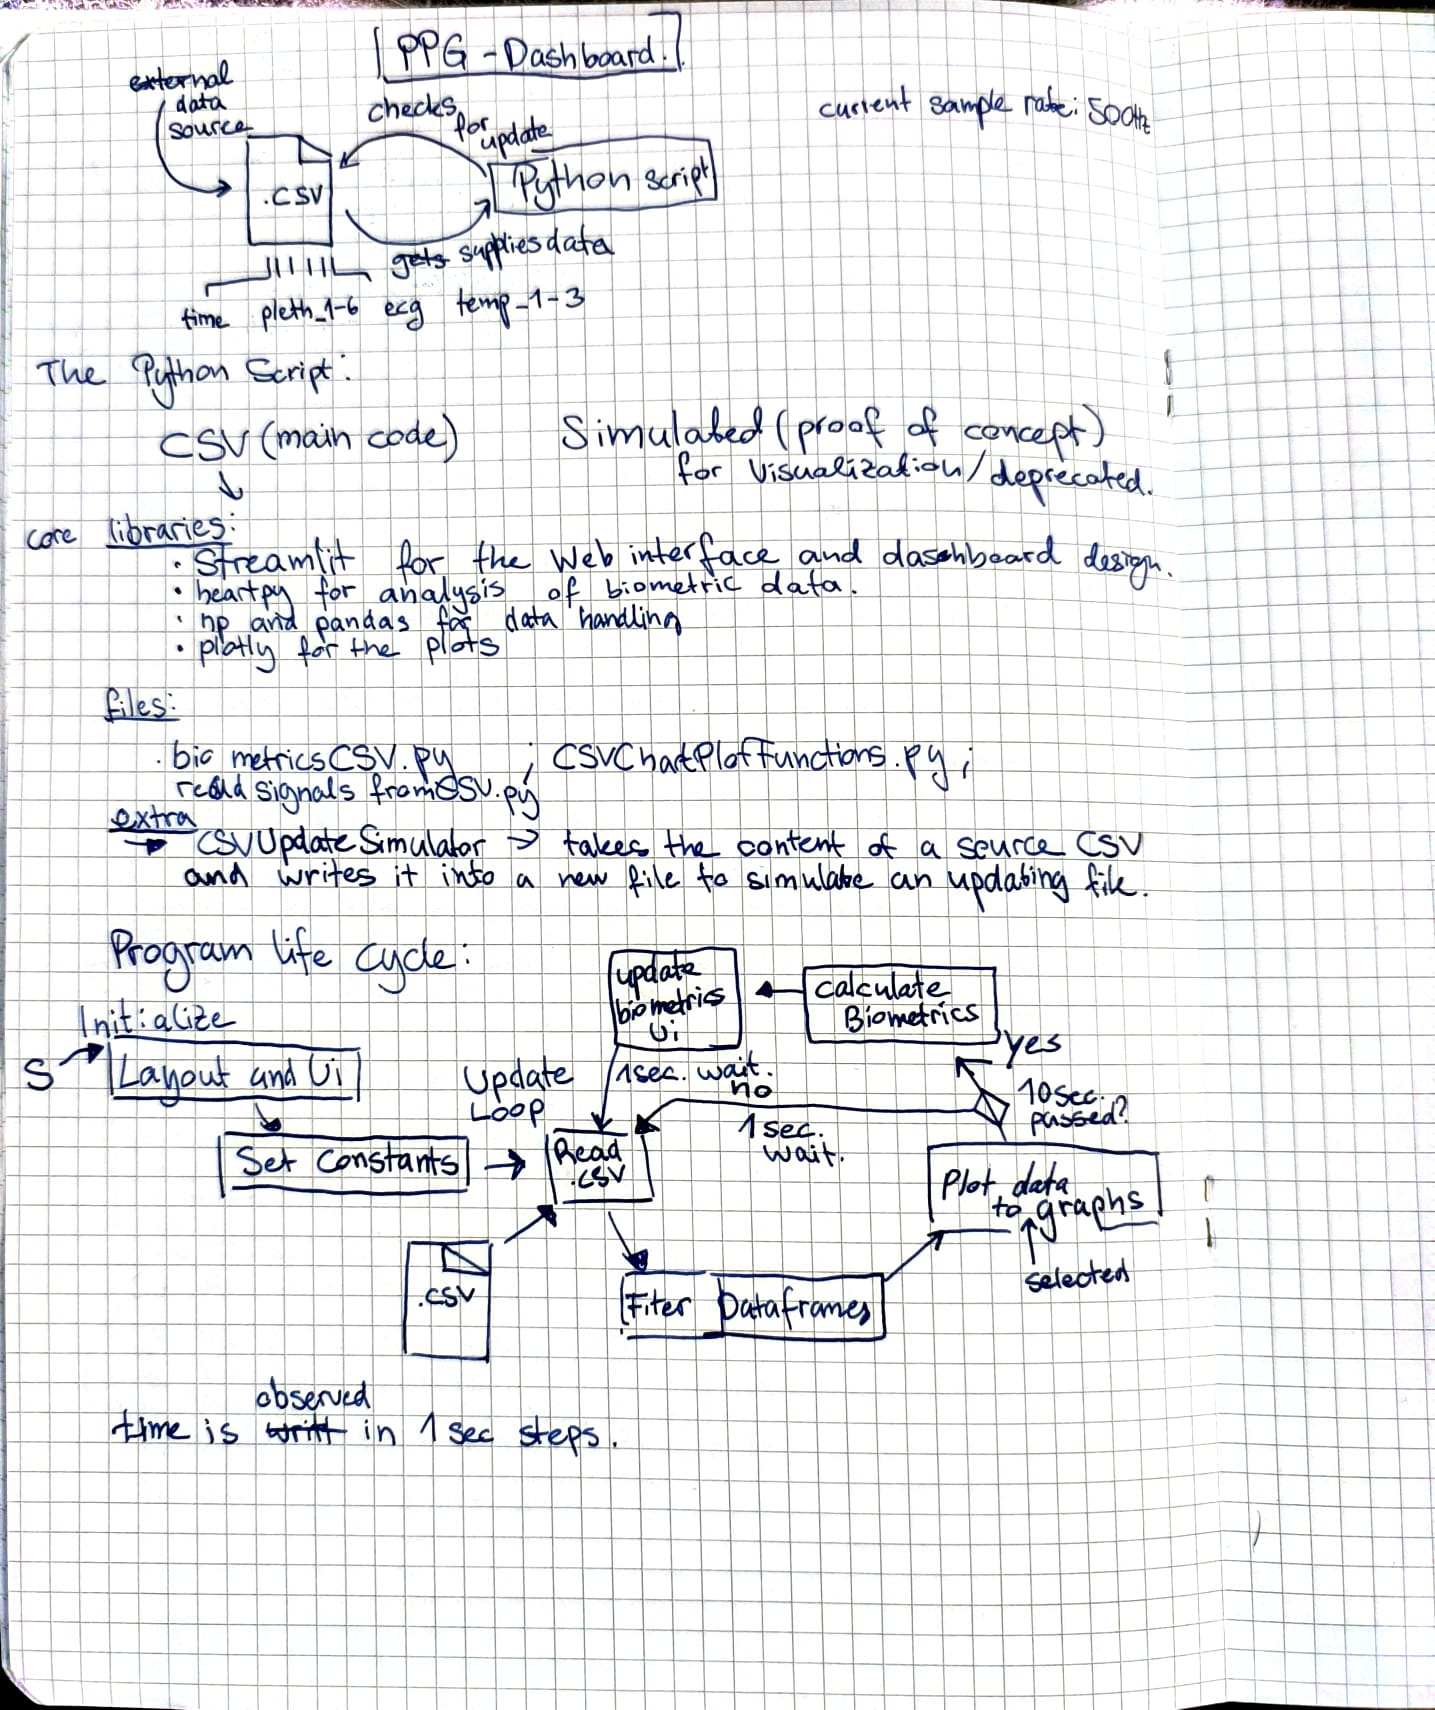 PPG - Dashboard.
external
data
source
checks
for
update
current sample rate: 500Hz
.CSV
Python script
gets supplies data
time pleth_1-6 ecg temp_1-3
The Python Script:
CSV (main code)
Simulated (proof of concept)
for Visualization/deprecated.
core libraries:
• Streamlit for the Web interface and dashboard design.
• heartpy for analysis of biometric data.
• np and pandas for data handling
• plotly for the plots
files:
. bio metricsCSV.py ; CSVChartPlotFunctions.py ;
read signals fromCSV.py
extra
→ CSVUpdateSimulator → takes the content of a source CSV
and writes it into a new file to simulate an updating file.
Program life cycle:
update
biometrics
Ui
calculate
Biometrics
Initialize
S
Layout and Ui
Update
Loop
1sec. wait.
no
yes
10sec.
passed?
1sec.
wait.
Set constants
Read
.CSV
Plot data
to graphs
selected
.CSV
Fiter Dataframes
observed
time is writt in 1 sec steps.